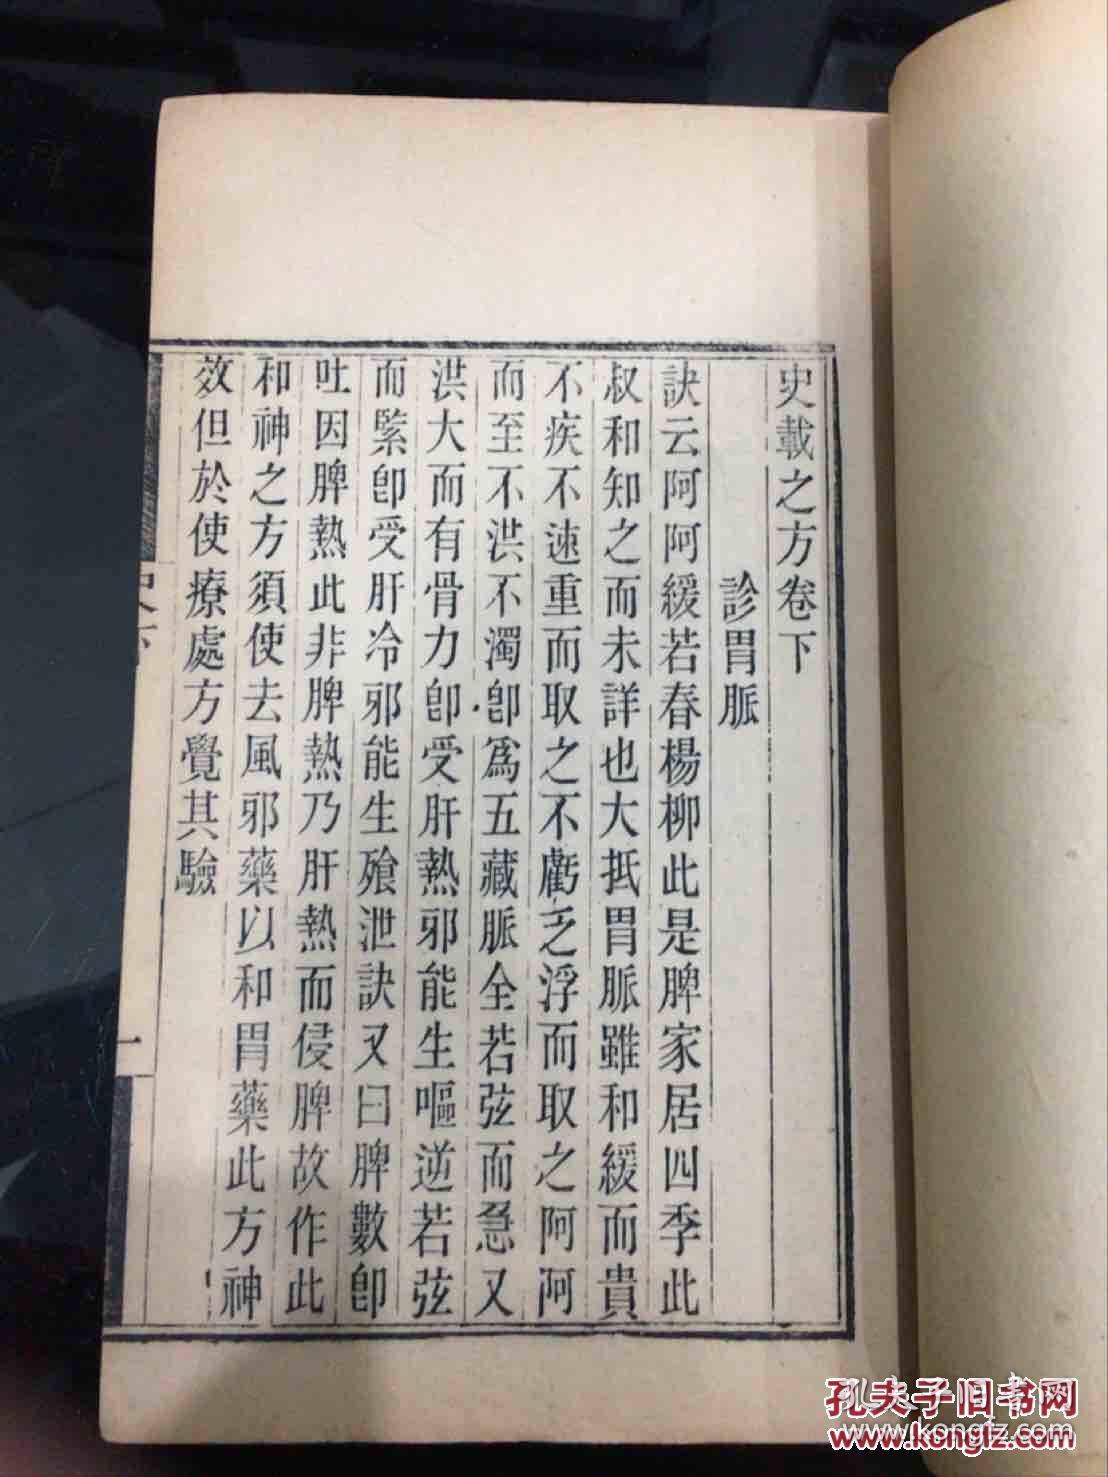 史載之方卷下
診胃脈
訣云阿阿緩若春楊柳此是脾家居四季此
叔和知之而未詳也大抵胃脈雖和緩而貴
不疾不速重而取之不虧乏浮而取之阿阿
而至不洪不濁卽爲五藏脈全若弦而急又
洪大而有骨力卽受肝熱邪能生嘔逆若弦
而緊卽受肝冷邪能生飱泄訣又曰脾數卽
吐因脾熱此非脾熱乃肝熱而侵脾故作此
和神之方須使去風邪藥以和胃藥此方神
效但於使療處方覺其驗
史下
一
孔夫子旧书网
www.kongfz.com